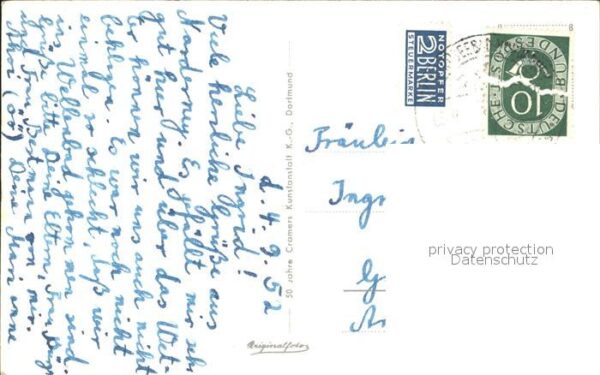 d. 4. 9. 52
Liebe Ingrid!
Viele herzliche Grüße aus
Norderney. Es gefällt mir sehr
gut hier und über das Wet-
ter können wir uns auch nicht
beklagen. Es war noch nicht
einmal so schlecht, daß wir
ins Wellenbad gehen
Grüße bitte Deine Eltern, Frau
und Frau von mir.
Deine
50 Jahre Cramers Kunstanstalt K.-G., Dortmund
Originalfoto
NOTOPFER
2 BERLIN
STEUERMARKE
DEUTSCHE BUNDESPOST
10
B
Fräulein
Ingr
privacy protection
Datenschutz